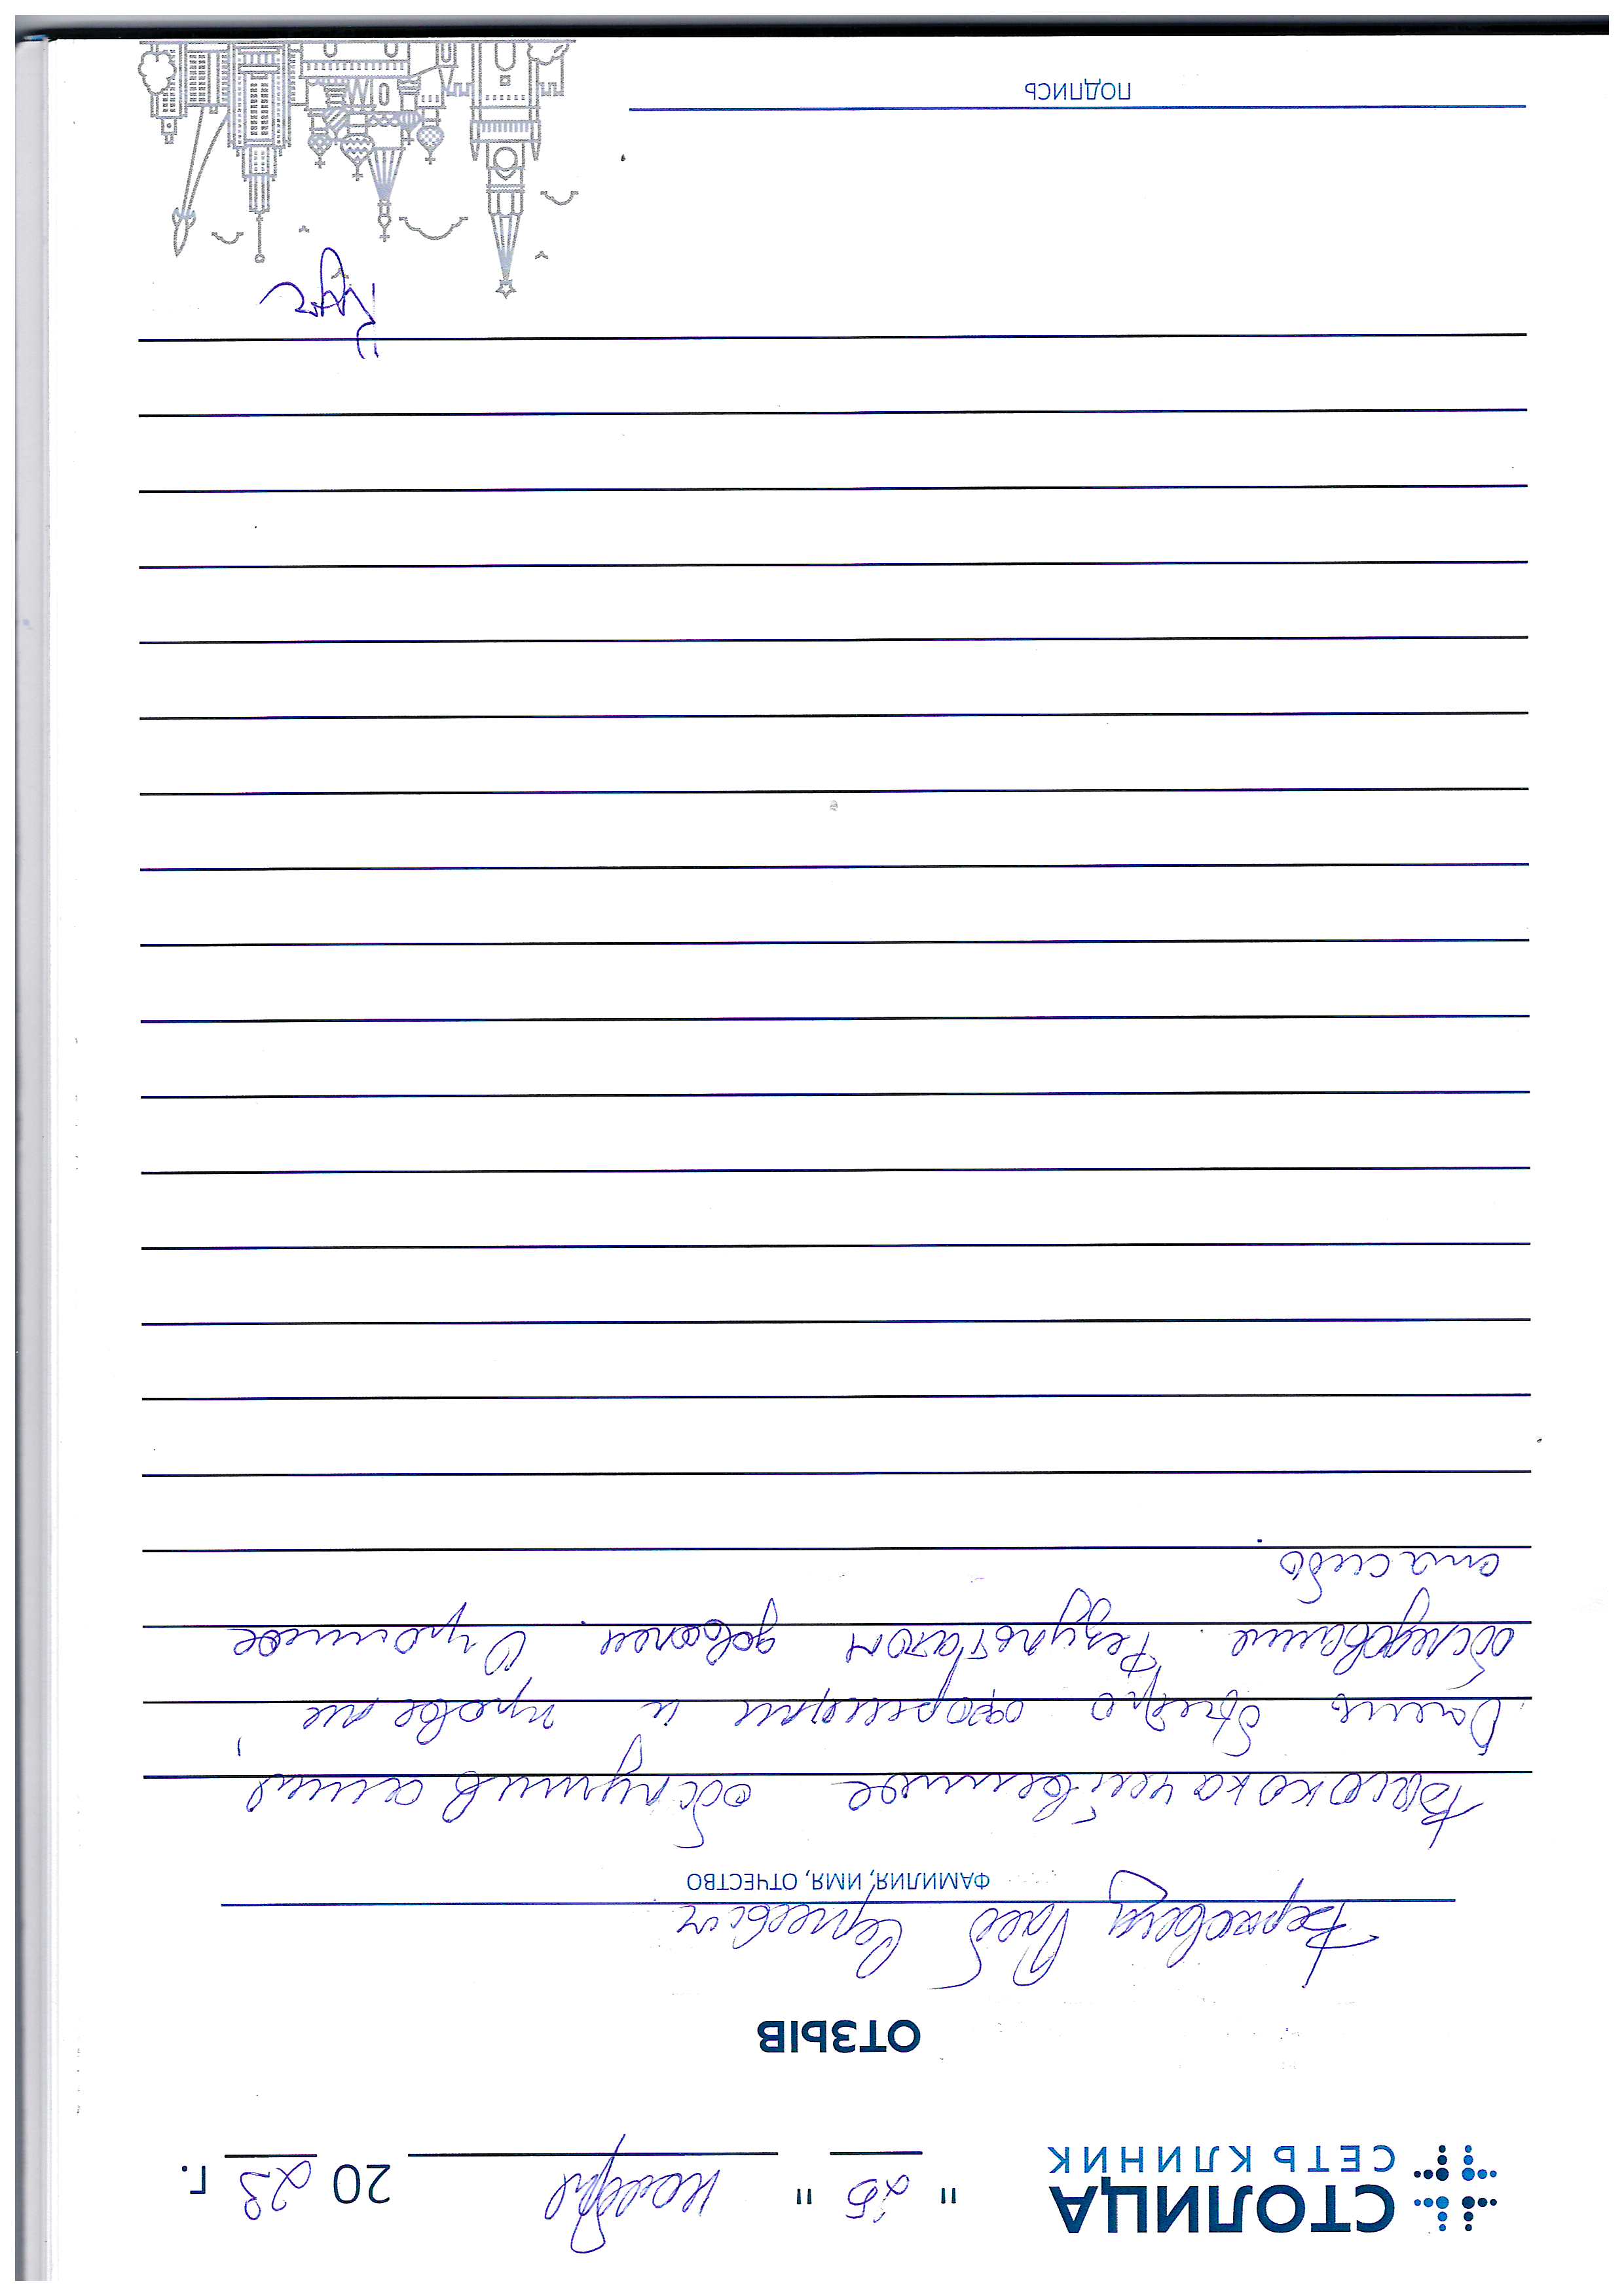 СТОЛИЦА
СЕТЬ КЛИНИК
" 25 " ноября 20 23 г.
ОТЗЫВ
Глеб Сергеевич
ФАМИЛИЯ, ИМЯ, ОТЧЕСТВО
Высококачественное обслуживание,
Очень быстро оформили и провели
обследование. Результатом доволен. Огромное
спасибо
ПОДПИСЬ